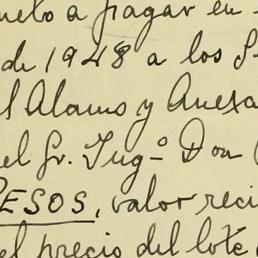 uelo a pagar en
de 1948 a los S
l Alamo y Anexa
el Sr. Ing.º Don
PESOS, valor reci
el precio del lote